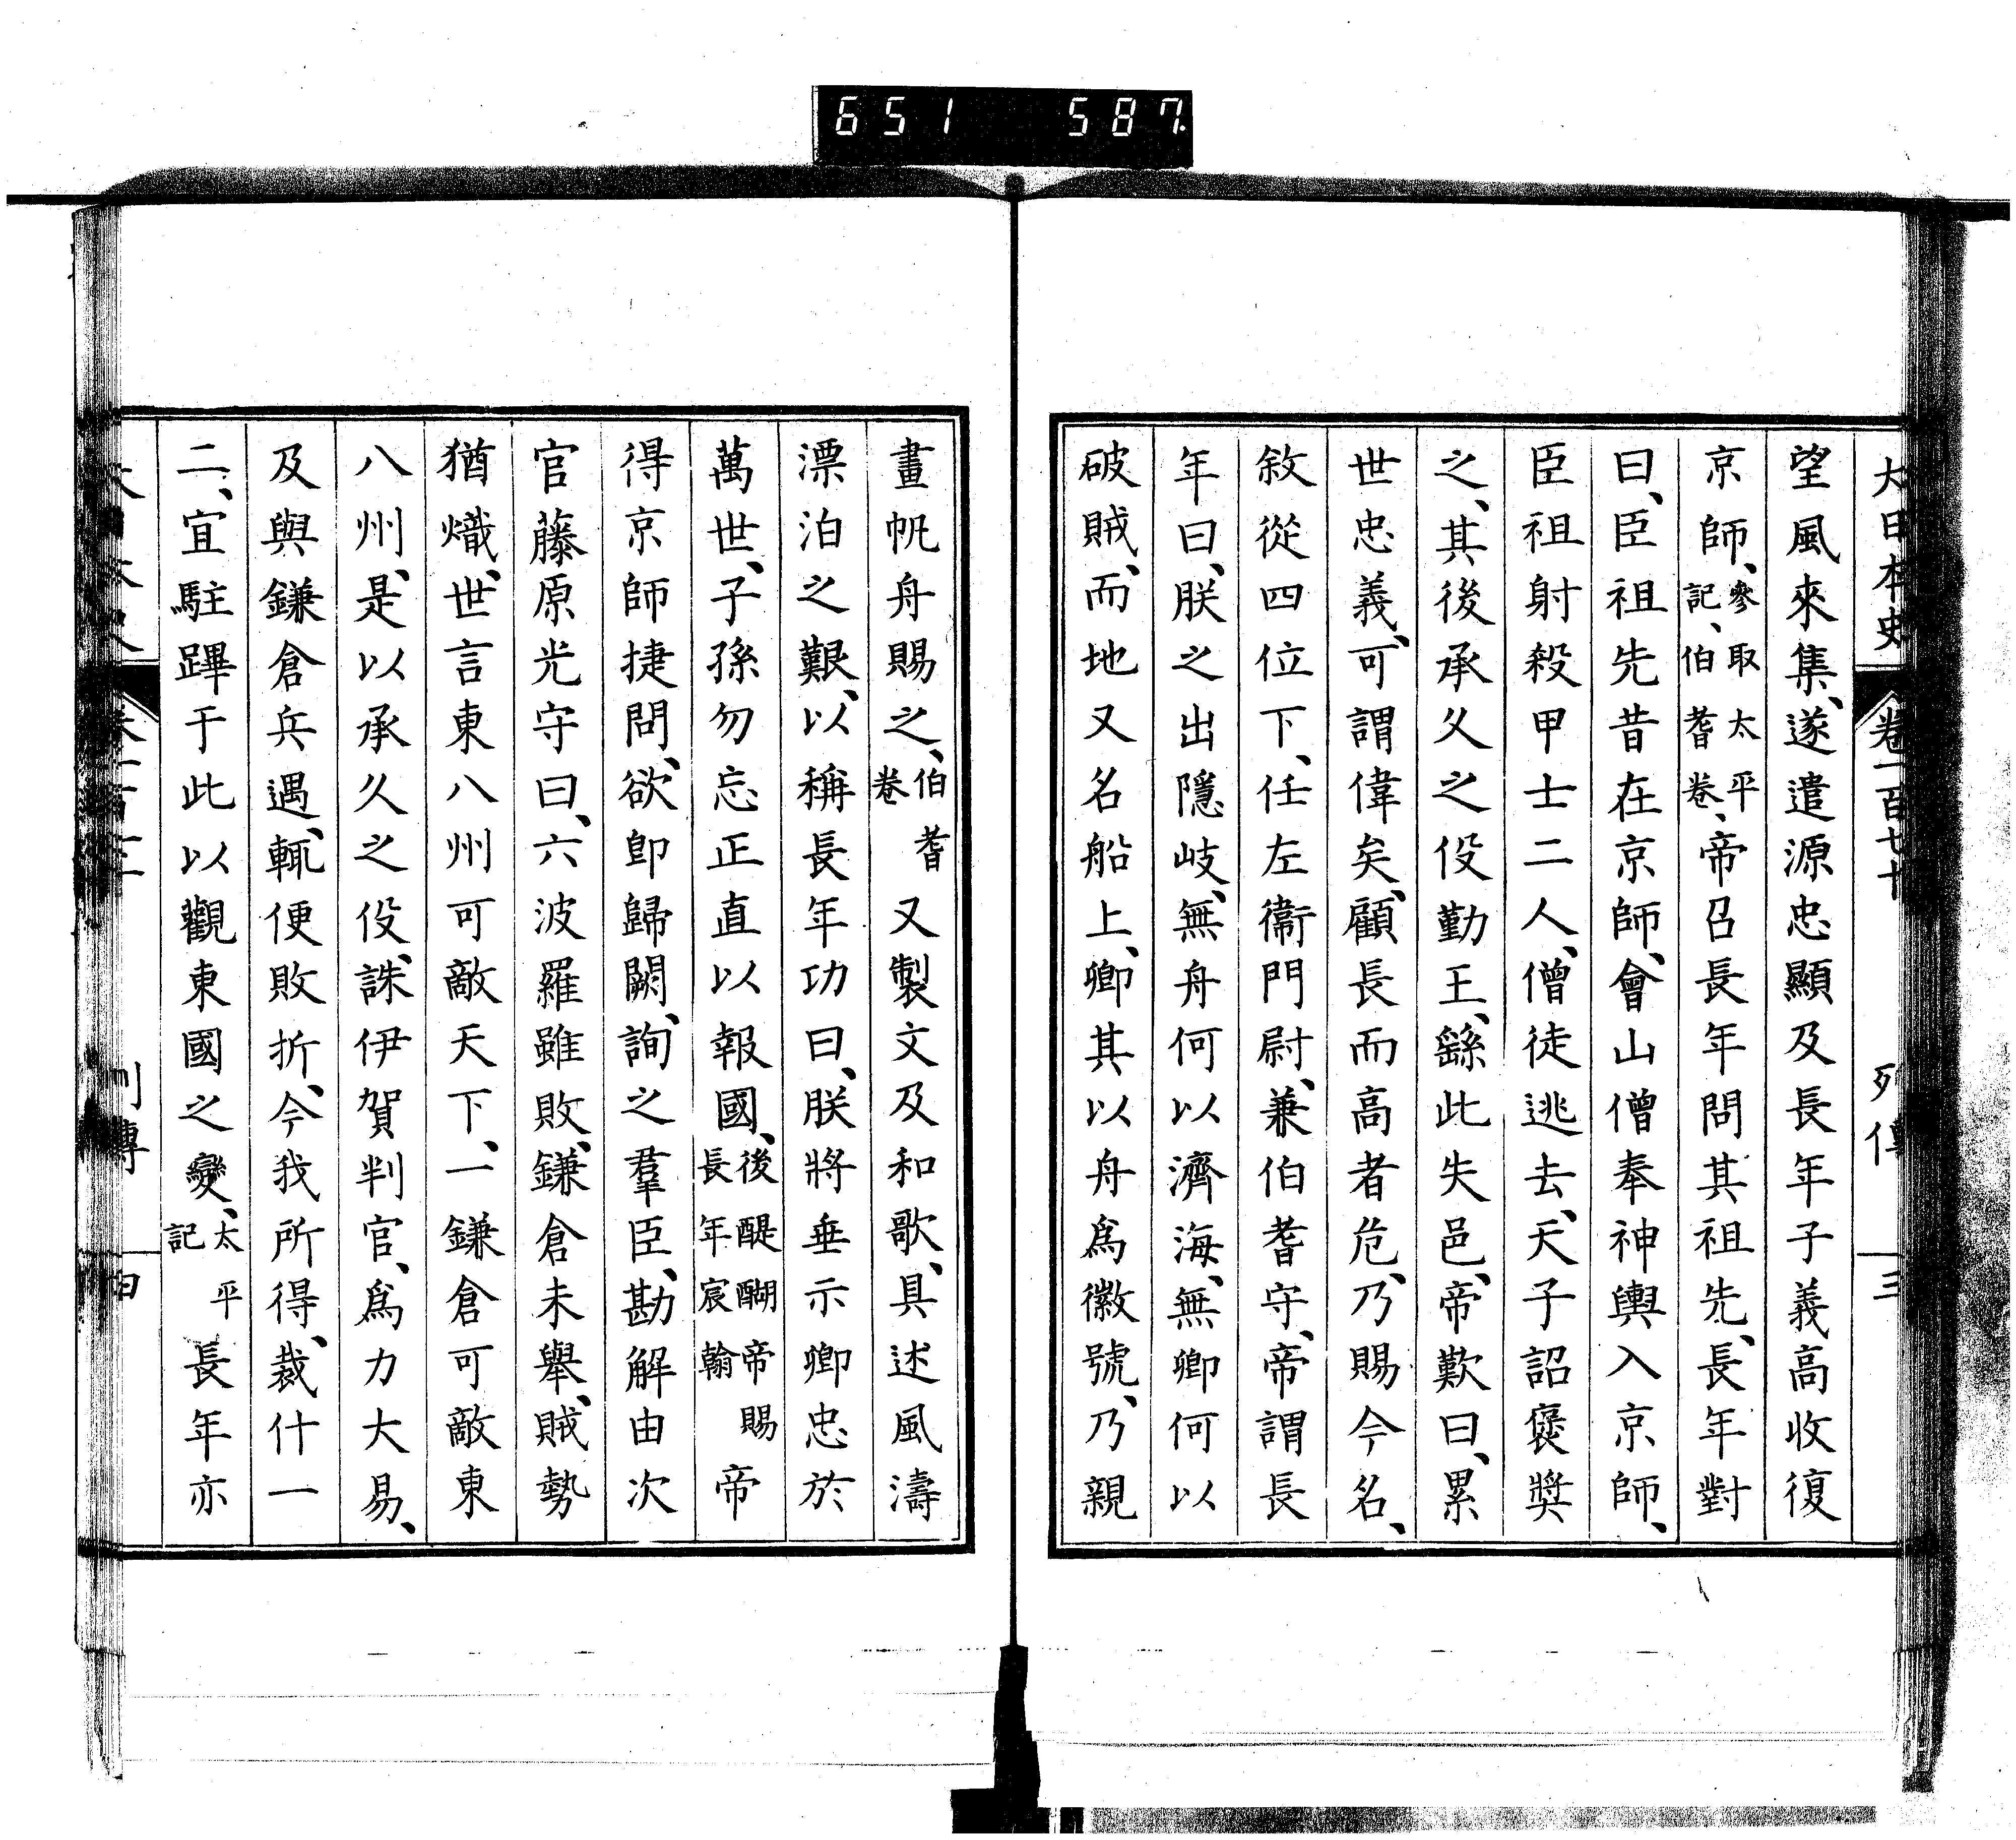 651 587
大日本史 卷一百七十 列傳 三
望風來集、遂遣源忠顯及長年子義高收復
京師、參取太平記、伯耆卷、帝召長年問其祖先、長年對
曰、臣祖先昔在京師、會山僧奉神輿入京師、
臣祖射殺甲士二人、僧徒逃去、天子詔褒獎
之、其後承久之役勤王、繇此失邑、帝歎曰、累
世忠義、可謂偉矣、顧長而高者危、乃賜今名、
敘從四位下、任左衞門尉、兼伯耆守、帝謂長
年曰、朕之出隱岐、無舟何以濟海、無卿何以
破賊、而地又名船上、卿其以舟爲徽號、乃親
畫帆舟賜之、伯耆卷又製文及和歌、具述風濤
漂泊之艱、以稱長年功曰、朕將垂示卿忠於
萬世、子孫勿忘正直以報國、後醍醐帝賜長年宸翰帝
得京師捷問、欲卽歸闕、詢之羣臣、勘解由次
官藤原光守曰、六波羅雖敗、鎌倉未舉、賊勢
猶熾、世言東八州可敵天下、一鎌倉可敵東
八州、是以承久之役、誅伊賀判官、爲力大易、
及與鎌倉兵遇、輒便敗折、今我所得、裁什一
二、宜駐蹕于此以觀東國之變、太平記長年亦
列傳